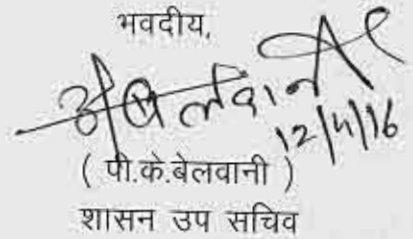 भवदीय,
12/4/16
( पी.के.बेलवानी )
शासन उप सचिव